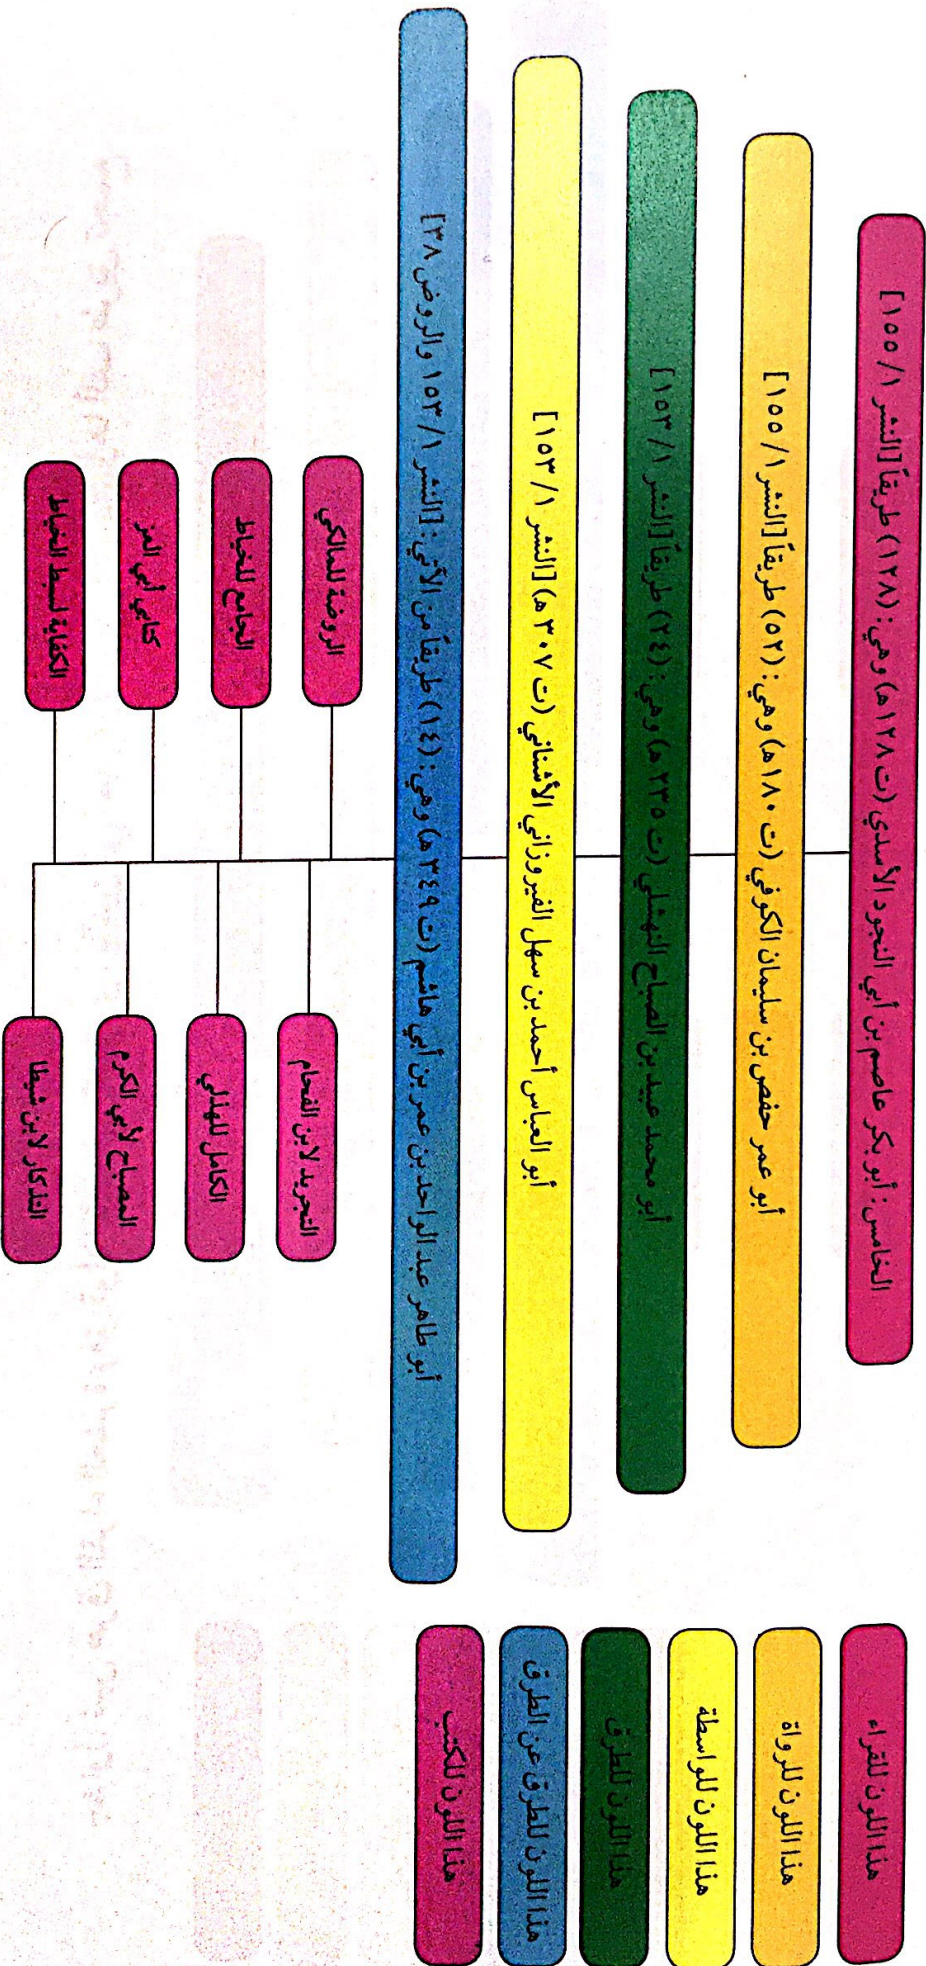 الخامس: أبو بكر عاصم بن أبي النجود الأسدي (ت ١٢٨ هـ) وهي: (١٢٨) طريقاً [النشر ١/ ١٥٥]
أبو عمر حفص بن سليمان الكوفي (ت ١٨٠ هـ) وهي: (٥٢) طريقاً [النشر ١/ ١٥٥]
أبو محمد عبيد بن الصباح النهشلي (ت ٢٣٥ هـ) وهي: (٢٤) طريقاً [النشر ١/ ١٥٣]
أبو العباس أحمد بن سهل الفيروزاني الأشناني (ت ٣٠٧ هـ) [النشر ١/ ١٥٣]
أبو طاهر عبد الواحد بن عمر بن أبي هاشم (ت ٣٤٩ هـ) وهي: (١٤) طريقاً من الآتي: [النشر ١/ ١٥٣ والروض ٣٨]
التجريد لابن الفحام
الروضة للمالكي
الكامل للهذلي
الجامع للخياط
المصباح لأبي الكرم
كتابي أبي العز
التذكار لابن شيطا
الكفاية لسبط الخياط
هذا اللون للقراء
هذا اللون للرواة
هذا اللون للواسطة
هذا اللون للطرق
هذا اللون للطرق عن الطرق
هذا اللون للكتب